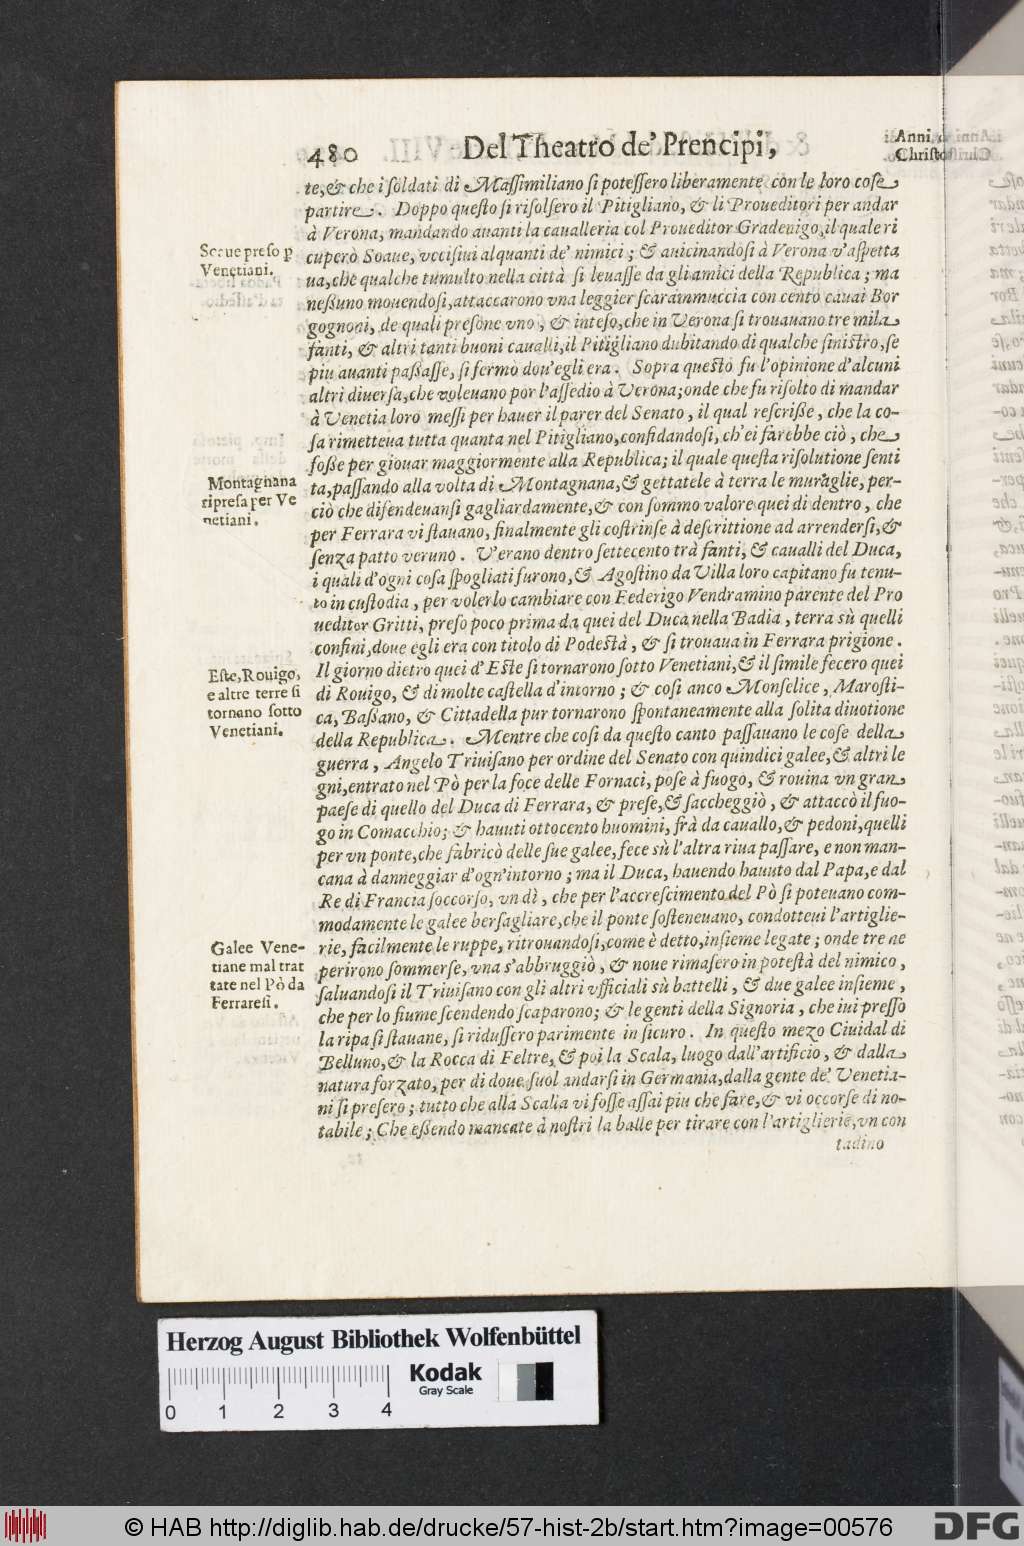 480
Del Theatro de' Prencipi,
Anni di
Christo
te, & che i soldati di Massimiliano si potessero liberamente con le loro cose
partire. Doppo questo si risolsero il Pitigliano, & li Proueditori per andar
à Verona, mandando auanti la caualleria col Proueditor Gradenigo, il quale ri
cuperò Soaue, vccisiui alquanti de' nimici; & auicinandosi à Verona v'aspetta
ua, che qualche tumulto nella città si leuasse da gli amici della Republica; ma
neßuno mouendosi, attaccarono vna leggier scaramuccia con cento cauai Bor
gognoni, de quali presone vno, & inteso, che in Verona si trouauano tre mila
fanti, & altri tanti buoni caualli, il Pitigliano dubitando di qualche sinistro, se
piu auanti paßasse, si fermò dou'egli era. Sopra questo fu l'opinione d'alcuni
altri diuersa, che voleuano por l'assedio à Verona; onde che fu risolto di mandar
à Venetia loro messi per hauer il parer del Senato, il qual rescriße, che la co-
sa rimetteua tutta quanta nel Pitigliano, confidandosi, ch'ei farebbe ciò, che
foße per giouar maggiormente alla Republica; il quale questa risolutione senti
ta, passando alla volta di Montagnana, & gettatele à terra le muraglie, per-
ciò che difendeuansi gagliardamente, & con sommo valore quei di dentro, che
per Ferrara vi stauano, finalmente gli costrinse à descrittione ad arrendersi, &
senza patto veruno. V'erano dentro settecento trà fanti, & caualli del Duca,
i quali d'ogni cosa spogliati furono, & Agostino da Villa loro capitano fu tenu-
to in custodia, per volerlo cambiare con Federigo Vendramino parente del Pro
ueditor Gritti, preso poco prima da quei del Duca nella Badia, terra sù quelli
confini, doue egli era con titolo di Podestà, & si trouaua in Ferrara prigione.
Il giorno dietro quei d'Este si tornarono sotto Venetiani, & il simile fecero quei
di Rouigo, & di molte castella d'intorno; & cosi anco Monselice, Marosti-
ca, Baßano, & Cittadella pur tornarono spontaneamente alla solita diuotione
della Republica. Mentre che cosi da questo canto passauano le cose della
guerra, Angelo Triuisano per ordine del Senato con quindici galee, & altri le
gni, entrato nel Pò per la foce delle Fornaci, pose à fuogo, & rouina vn gran
paese di quello del Duca di Ferrara, & prese, & saccheggiò, & attaccò il fuo-
go in Comacchio; & hauuti ottocento huomini, frà da cauallo, & pedoni, quelli
per vn ponte, che fabricò delle sue galee, fece sù l'altra riua passare, e non man-
cana à danneggiar d'ogn'intorno; ma il Duca, hauendo hauuto dal Papa, e dal
Re di Francia soccorso, vn dì, che per l'accrescimento del Pò si poteuano com-
modamente le galee bersagliare, che il ponte sosteneuano, condotteui l'artiglie-
rie, facilmente le ruppe, ritrouandosi, come è detto, insieme legate; onde tre ne
perirono sommerse, vna s'abbruggiò, & noue rimasero in potestà del nimico,
saluandosi il Triuisano con gli altri vfficiali sù battelli, & due galee insieme,
che per lo fiume scendendo scaparono; & le genti della Signoria, che iui presso
la ripa si stauane, si ridussero parimente in sicuro. In questo mezo Ciuidal di
Belluno, & la Rocca di Feltre, & poi la Scala, luogo dall'artificio, & dalla
natura forzato, per di doue suol andarsi in Germania, dalla gente de' Venetia-
ni si presero; tutto che alla Scalla vi fosse assai piu che fare, & vi occorse di no-
tabile; Che eßendo mancate à nostri la balle per tirare con l'artiglierie, vn con
tadino
Soaue preso p
Venetiani.
Montagnana
ripresa per Ve
netiani.
Este, Rouigo,
e altre terre si
tornano sotto
Venetiani.
Galee Vene-
tiane mal trat
tate nel Pò da
Ferraresi.
Herzog August Bibliothek Wolfenbüttel
Kodak
Gray Scale
0 1 2 3 4
© HAB http://diglib.hab.de/drucke/57-hist-2b/start.htm?image=00576
DFG